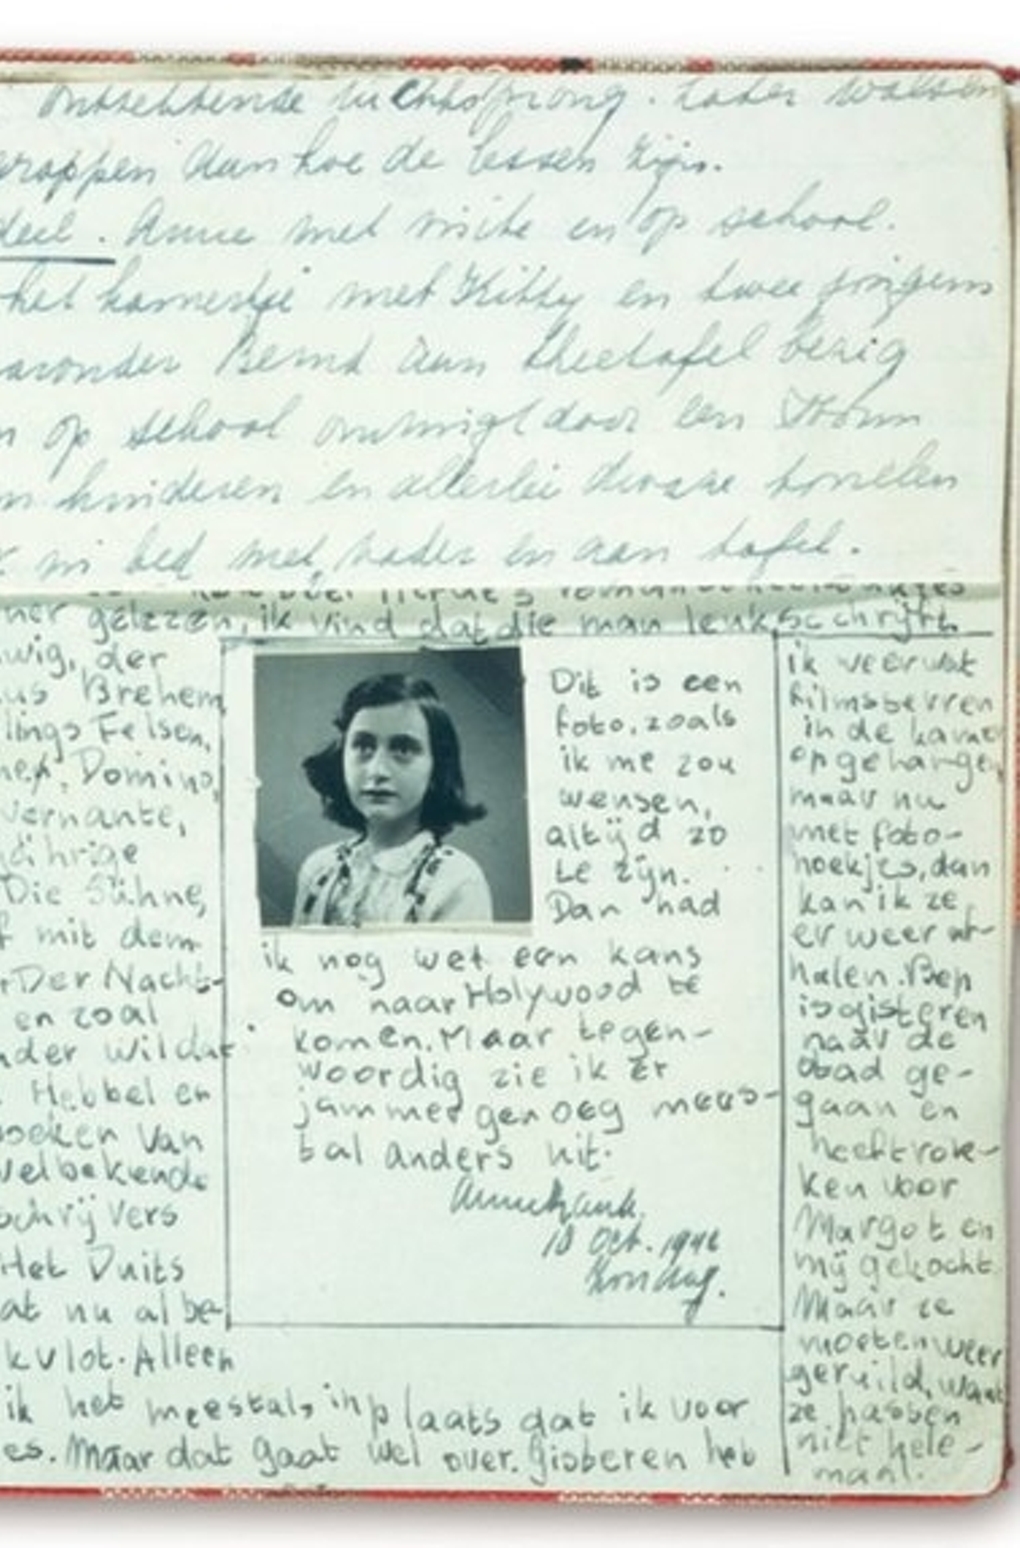 ontzettende luchtsprong. Later walsen
grappen aan hoe de lessen zijn.
deel. Anne met visite en op school.
het kamertje met Kitty en twee jongens
waaronder Bernd aan theetafel bezig
op school omringd door een
kinderen en allerlei dwaze
in bed met vader en aan tafel.
gelezen, ik vind dat die man leuk schrijft
wig, der
us Brehem
lings Felsen,
Domino,
vernante,
jährige
Die Sühne,
mit dem
Der Nacht-
en zoal
nder Wildat
Hebbel en
boeken van
welbekende
schrijvers
Het Duits
at nu al be-
k vlot. Alleen
ik het meestal, in plaats dat ik voor
es. Maar dat gaat wel over. Gisteren heb
Dit is een
foto, zoals
ik me zou
wensen,
altijd zo
te zijn.
Dan had
ik nog wel een kans
om naar Holywood te
komen. Maar tegen-
woordig zie ik er
jammer genoeg mees-
tal anders uit.
Annefrank.
10 Oct. 1942
Zondag.
ik weer wat
filmsterren
in de kamer
opgehangen
maar nu
met foto-
hoekjes, dan
kan ik ze
er weer af-
halen. Bep
is gisteren
naar de
stad ge-
gaan en
heeft rok-
ken voor
Margot en
mij gekocht.
Maar ze
moeten weer
geruild, want
ze passen
niet hele-
maal.